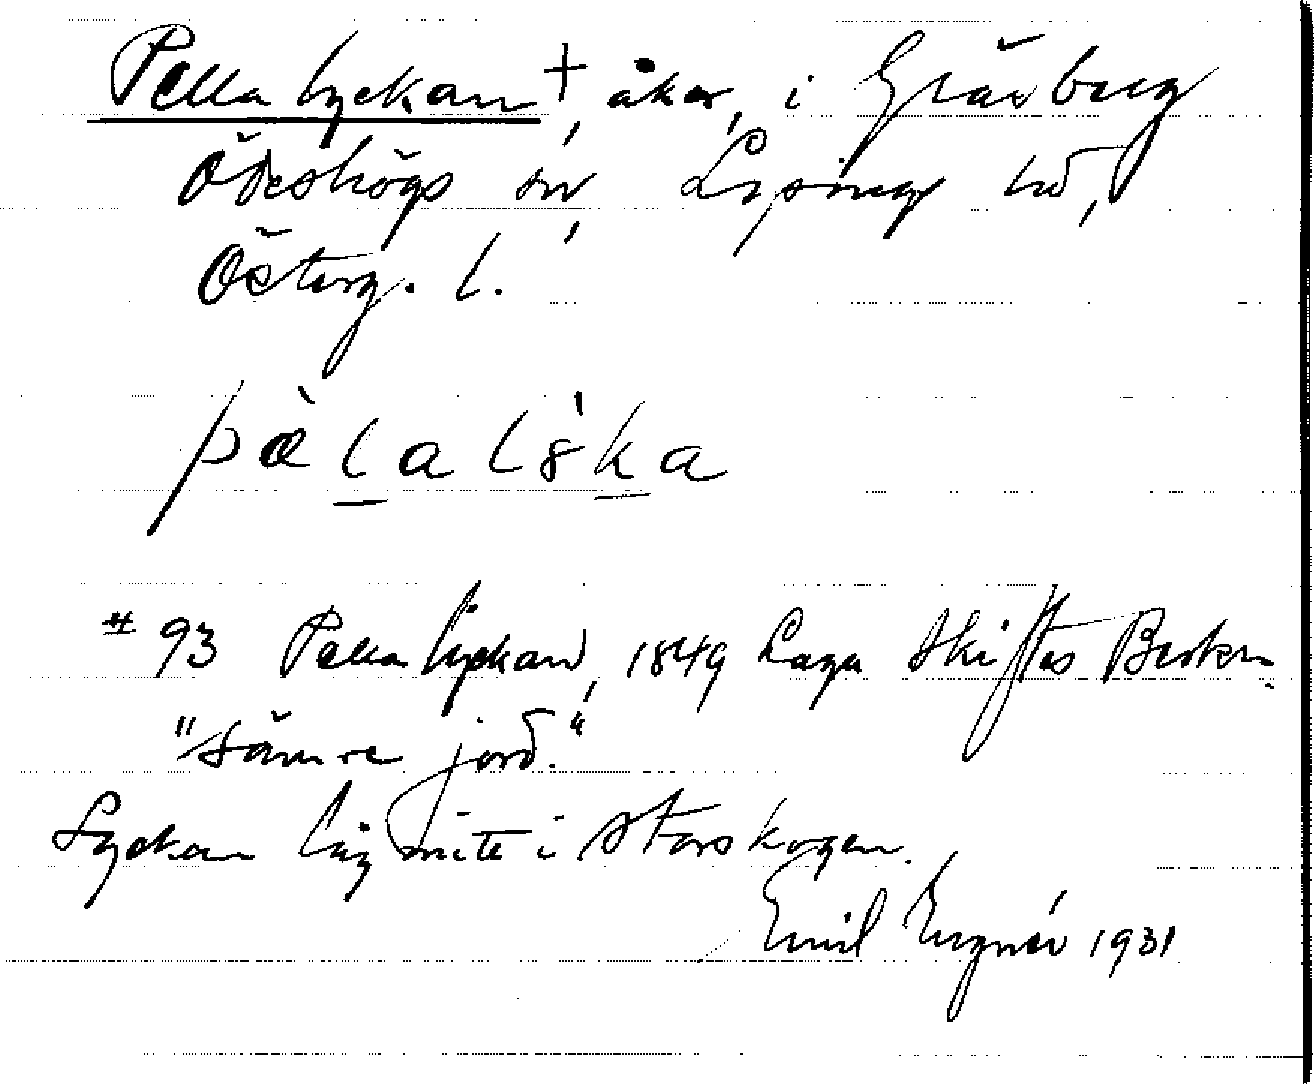 Pella lyckan †, åker, i Gräsberg
Ödeshögs sn, Lysings hd,
Österg. l.
pälalska
# 93 Pella lyckan, 1849 Laga Skiftes Beskr.
"sämre jord."
Lyckan låg inte i storskogen.
Emil 1931